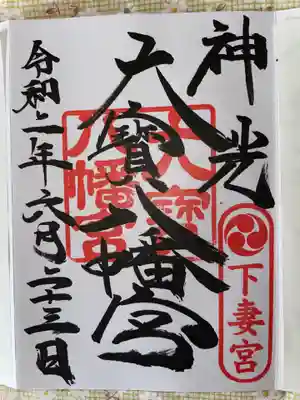 神光
下妻宮
大寶八幡宮
大寶八幡宮
令和二年六月二十三日